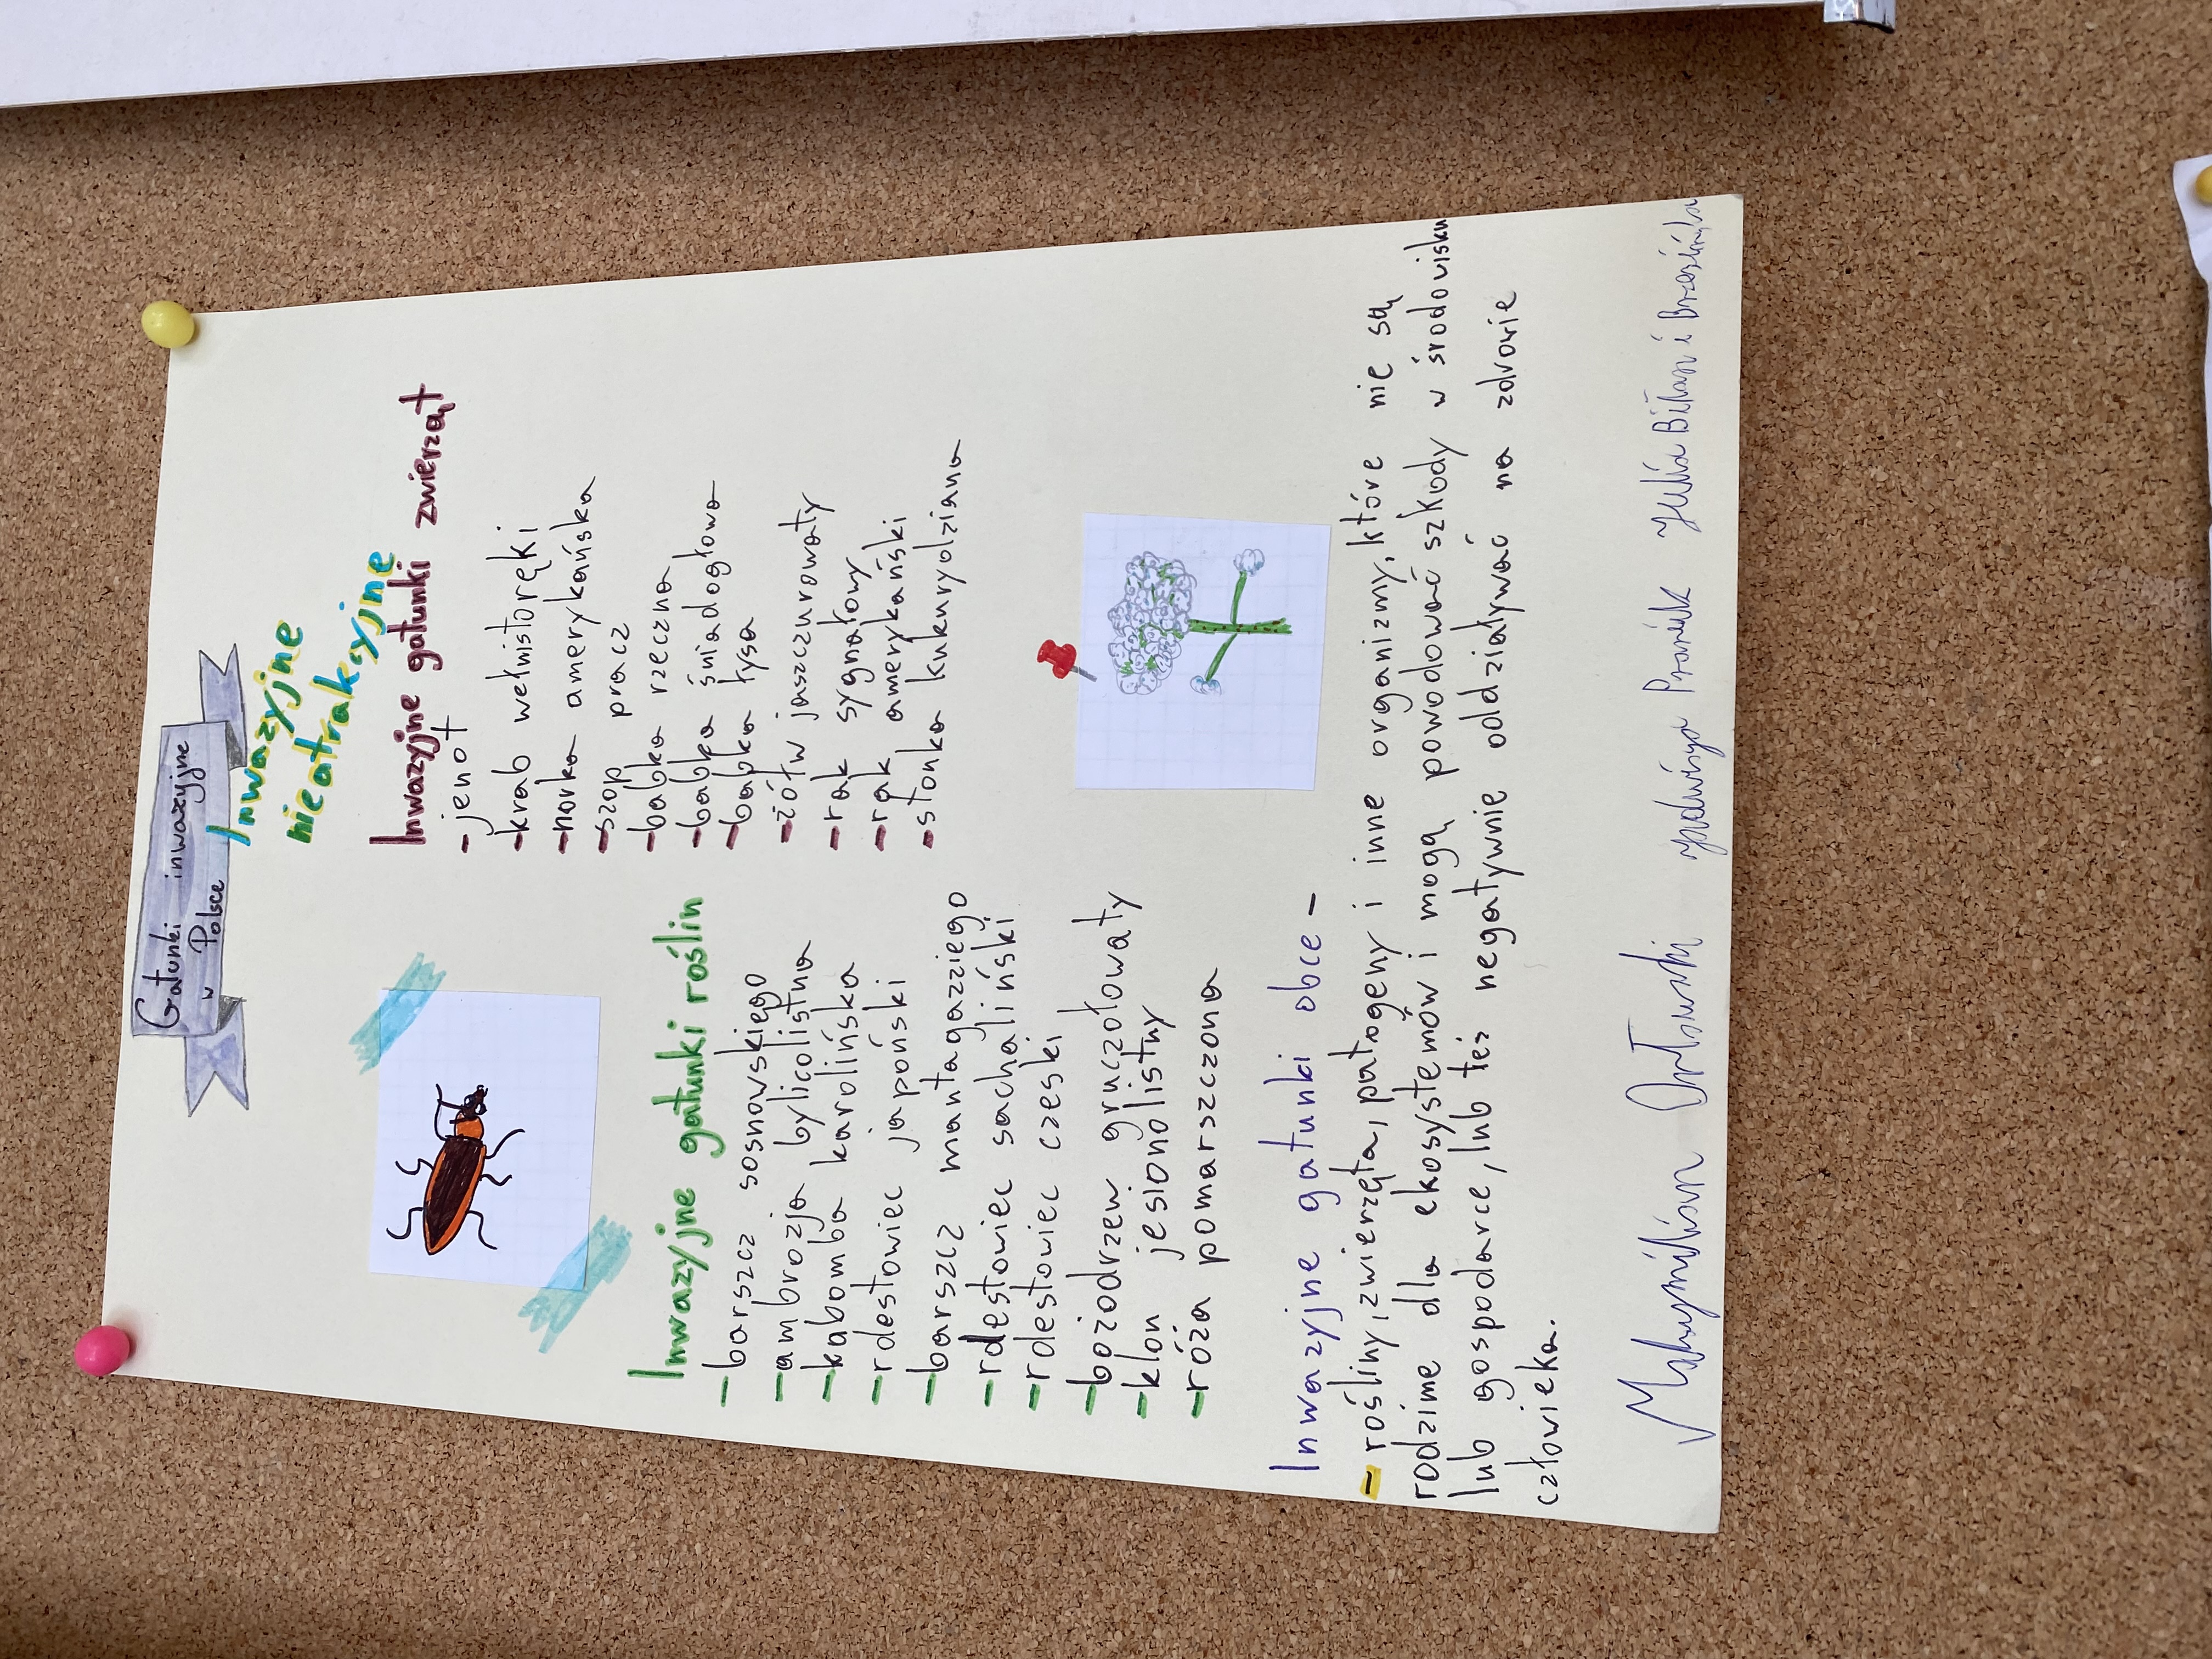 Gatunki inwazyjne
w Polsce
Inwazyjne
nieatrakcyjne
Inwazyjne gatunki zwierząt
- jenot
- krab wełnistoręki
- norka amerykańska
- szop pracz
- babka rzeczna
- babka śniadogłowa
- babka łysa
- żółw jaszczurowaty
- rak sygnałowy
- rak amerykański
- stonka kukurydziana
Inwazyjne gatunki roślin
- barszcz sosnowskiego
- ambrozja bylicolistna
- kabomba karolińska
- rdestowiec japoński
- barszcz mantagazziego
- rdestowiec sachaliński
- rdestowiec czeski
- bożodrzew gruczołowaty
- klon jesionolistny
- róża pomarszczona
Inwazyjne gatunki obce -
- rośliny, zwierzęta, patogeny i inne organizmy, które nie są
rodzime dla ekosystemów i mogą powodować szkody w środowisku
lub gospodarce, lub też negatywnie oddziaływać na zdrowie
człowieka.
Julia i